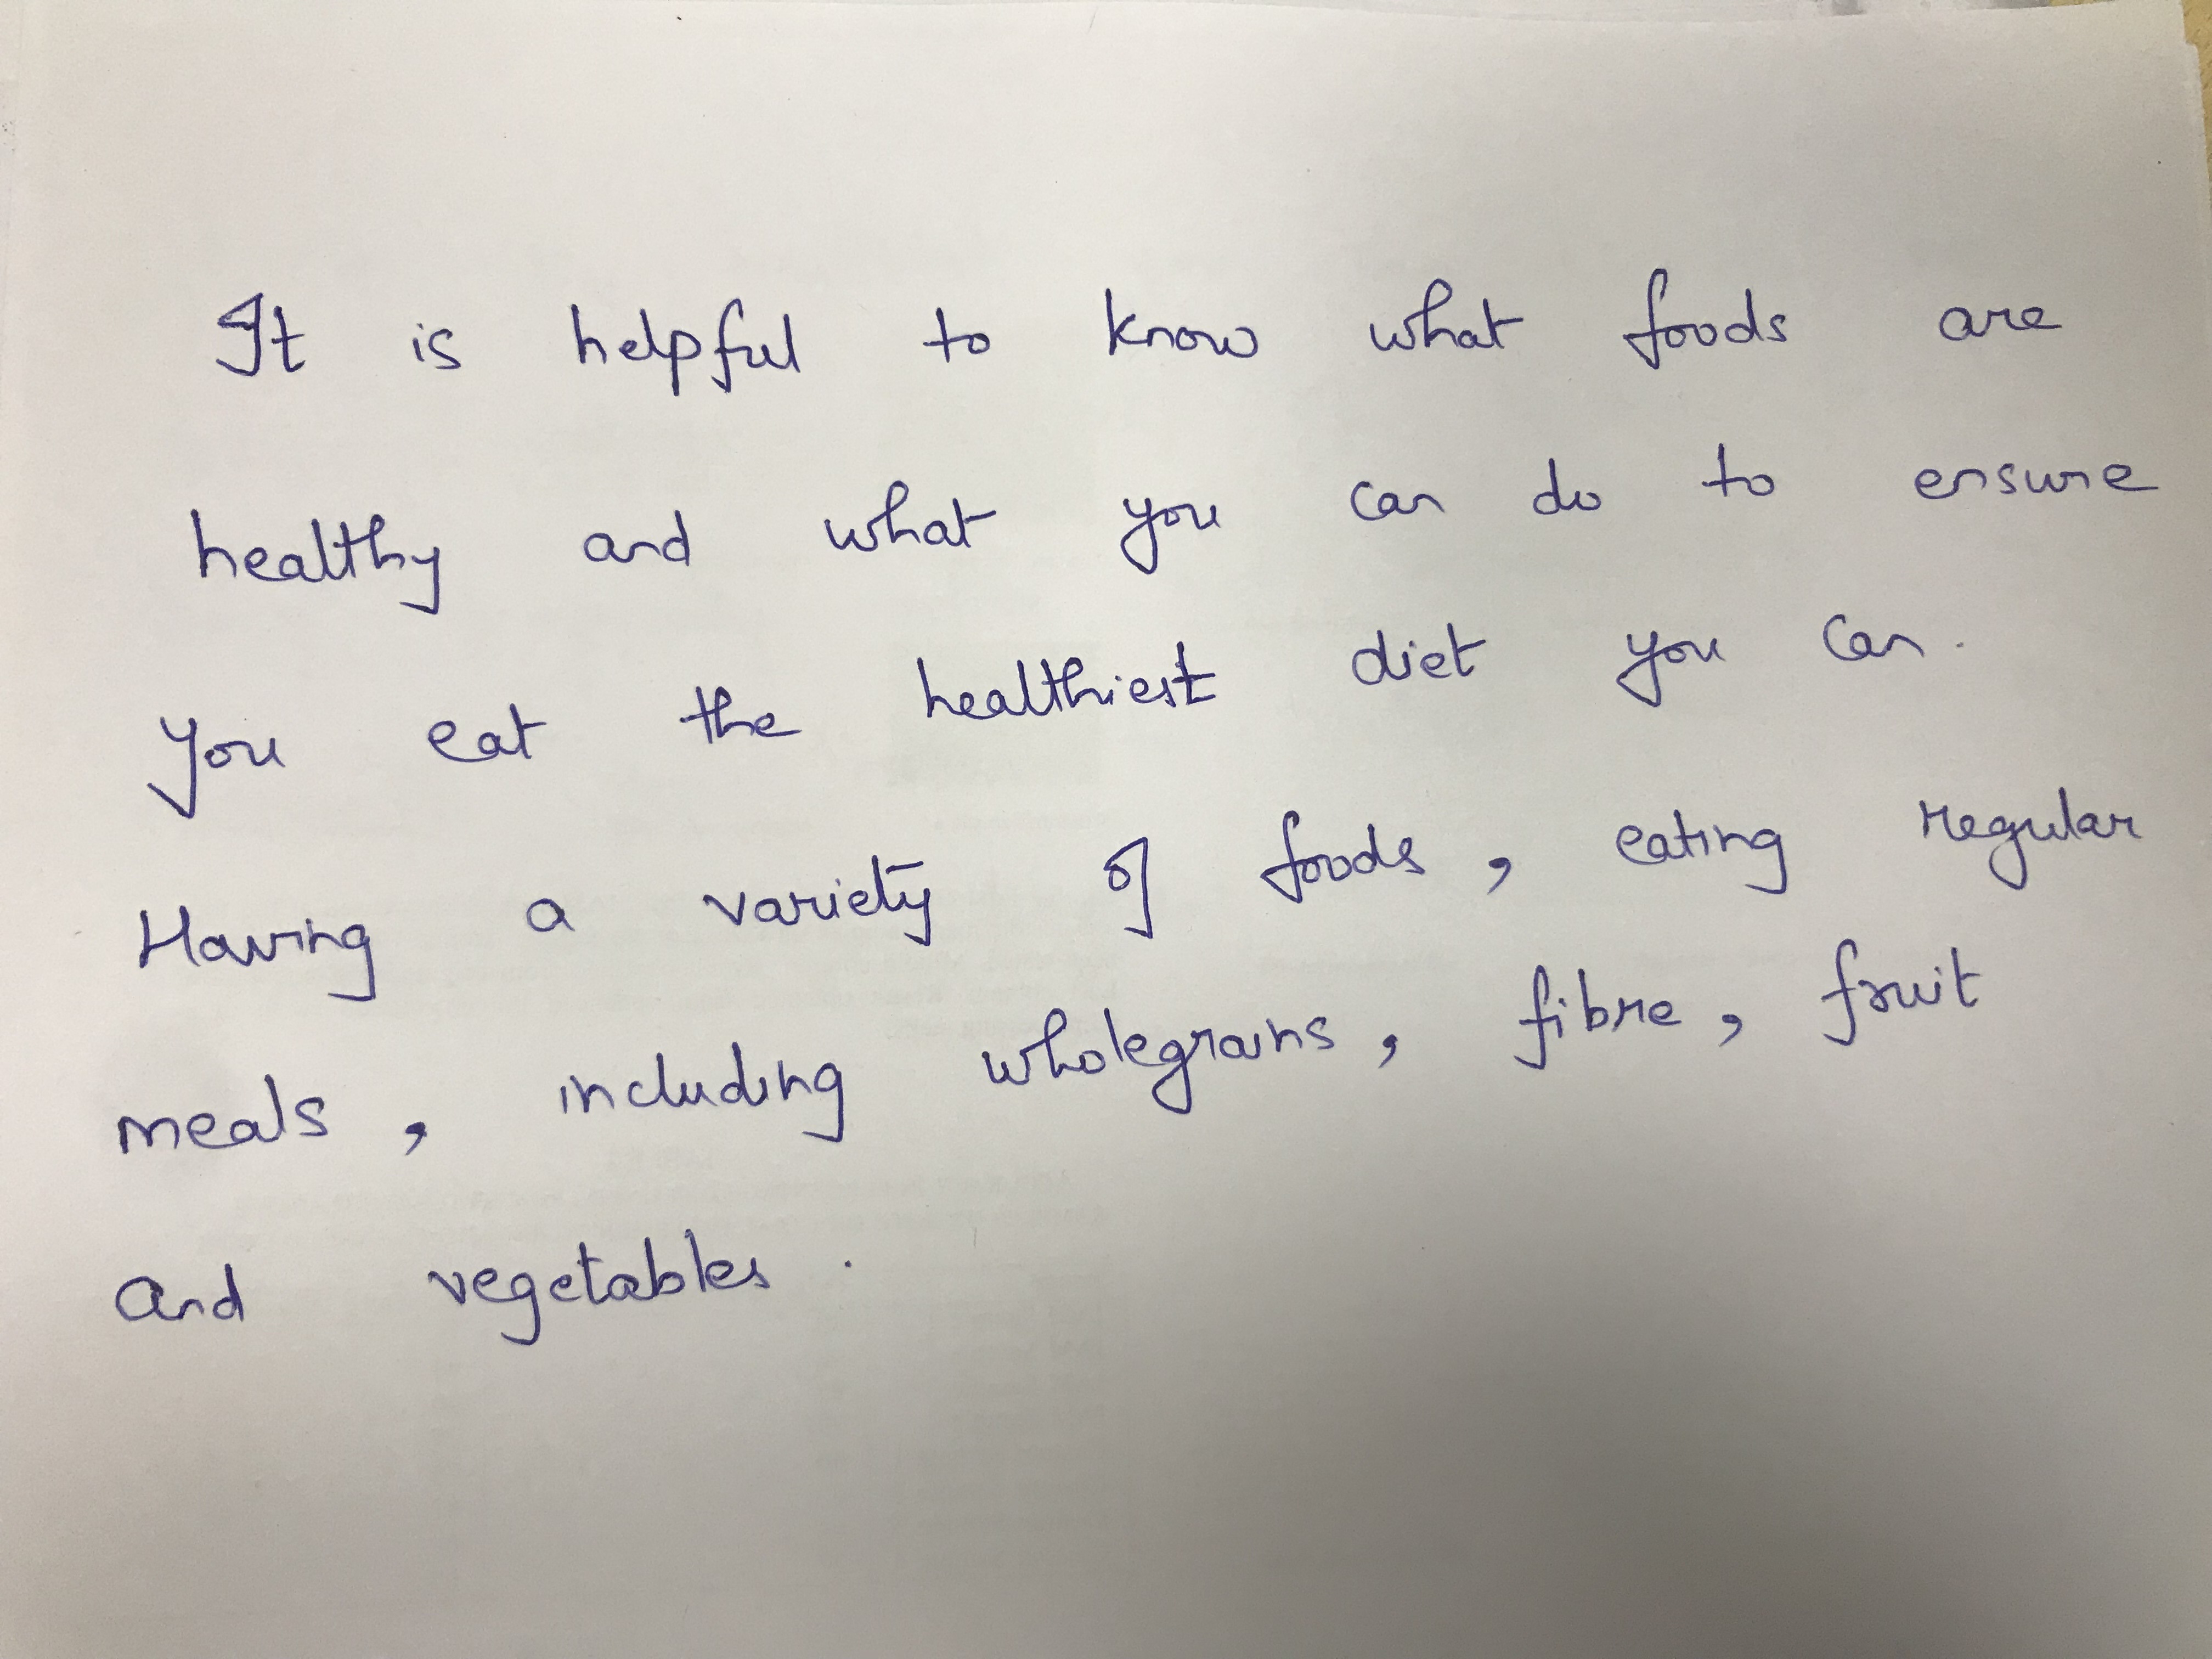 It is helpful to know what foods are
healthy and what you can do to ensure
you eat the healthiest diet you can.
Having a variety of foods, eating regular
meals, including wholegrains, fibre, fruit
and vegetables.